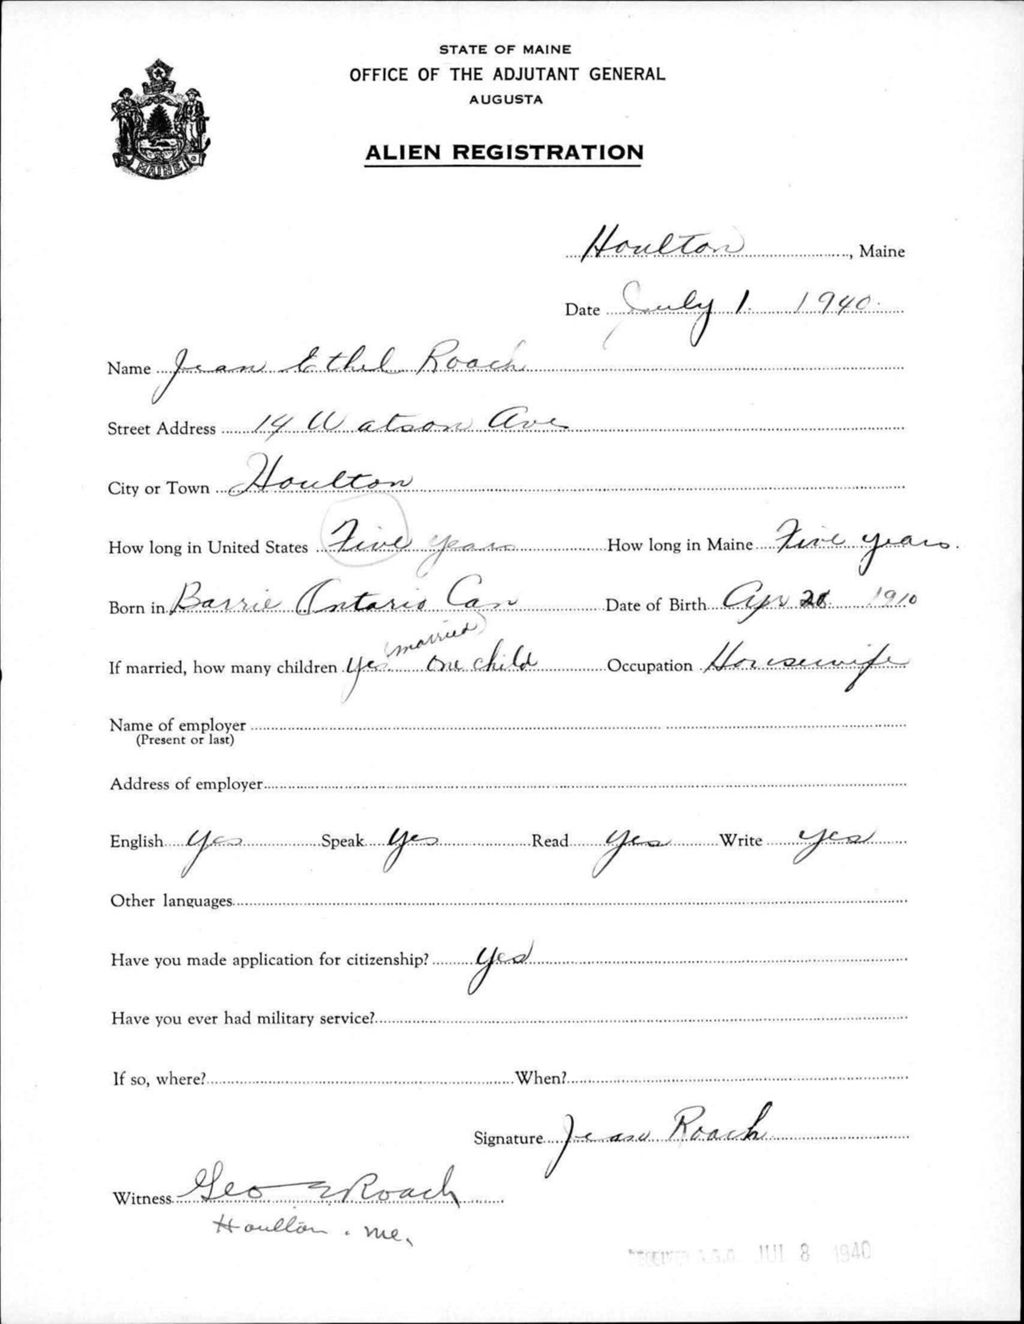 STATE OF MAINE
OFFICE OF THE ADJUTANT GENERAL
AUGUSTA
ALIEN REGISTRATION
MAINE
Houlton, Maine
Date July 1. 1940.
Name Jean Ethel Roach
Street Address 14 Watson Ave
City or Town Houlton
How long in United States Five years How long in Maine Five years.
Born in Barrie Ontario Can Date of Birth Apr 1910
(married)
If married, how many children yes one child Occupation Housewife
Name of employer
(Present or last)
Address of employer
English yes Speak yes Read yes Write yes
Other languages
Have you made application for citizenship? yes
Have you ever had military service?
If so, where? When?
Signature Jean Roach
Witness Geo E Roach
Houlton. Me.
RECEIVED A.G.O. JUL 8 1940